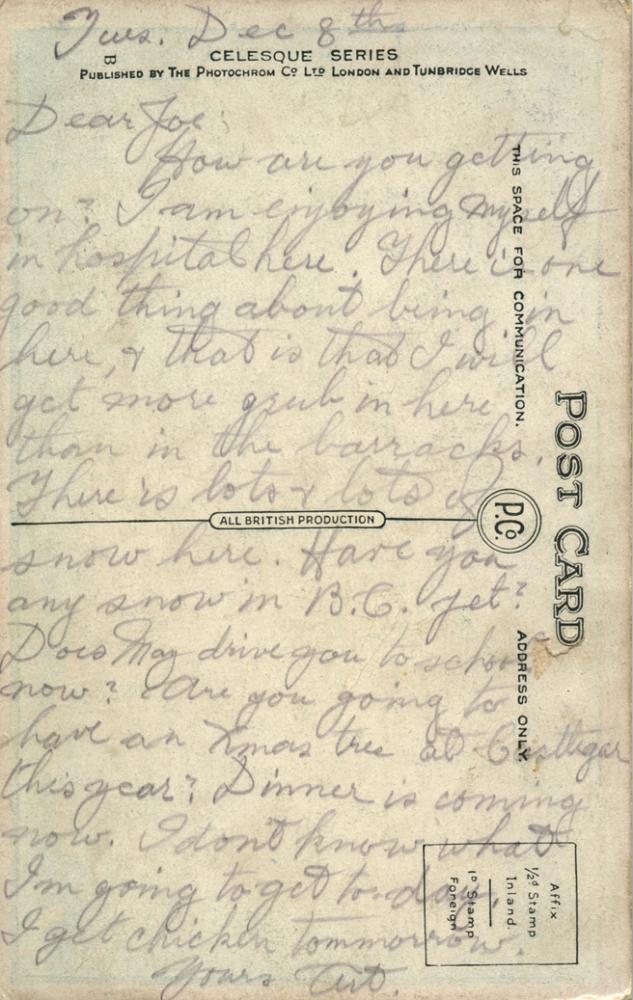 Tues. Dec 8th
B
CELESQUE SERIES
PUBLISHED BY THE PHOTOCHROM CO LTD LONDON AND TUNBRIDGE WELLS
Dear Joe:
How are you getting
on? I am enjoying myself
in hospital here. There is one
good thing about being in
here, & that is that I will
get more grub in here
than in the barracks.
There is lots & lots of
snow here. Have you
any snow in B.C. yet?
Does May drive you to school
now? Are you going to
have an Xmas tree at Castlegar
this year? Dinner is coming
now. I dont know what
I'm going to get to-day.
I get chicken tommorrow.
Yours Art.
THIS SPACE FOR COMMUNICATION.
ALL BRITISH PRODUCTION
P.Co
POST CARD
ADDRESS ONLY.
Affix
1/2d Stamp
Inland.
1d Stamp
Foreign